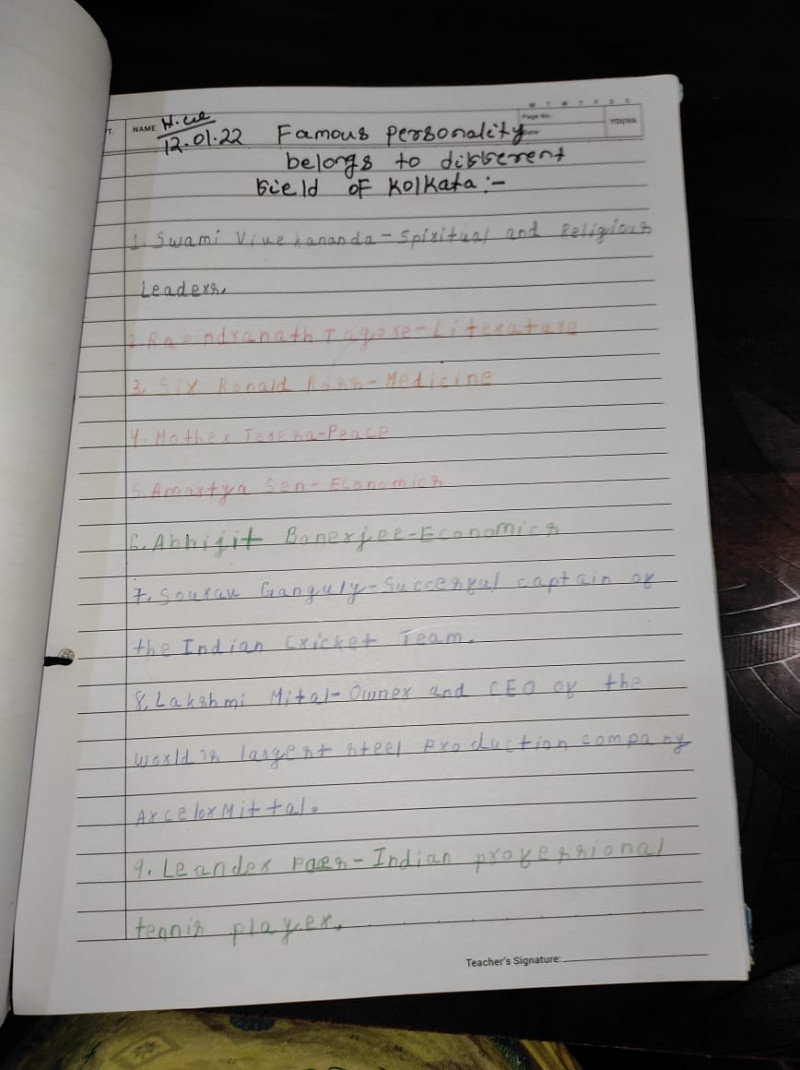 M T W T F S S
NAME H.W
Page No.:
YOUVA
12.01.22 Famous personality
belongs to different
field of Kolkata:-
1. Swami Vivekananda-Spiritual and Religious
Leaders.
2. Rabindranath Tagore-Literature
3. Sir Ronald Ross-Medicine
4. Mother Teresa-Peace
5. Amartya Sen-Economics
6. Abhijit Banerjee-Economics
7. Sourav Ganguly-Succesful captain of
the Indian Cricket Team.
8. Lakshmi Mital-Owner and CEO of the
world is largest steel production company
ArcelorMittal.
9. Leander Paes-Indian professional
tennis player.
Teacher's Signature: